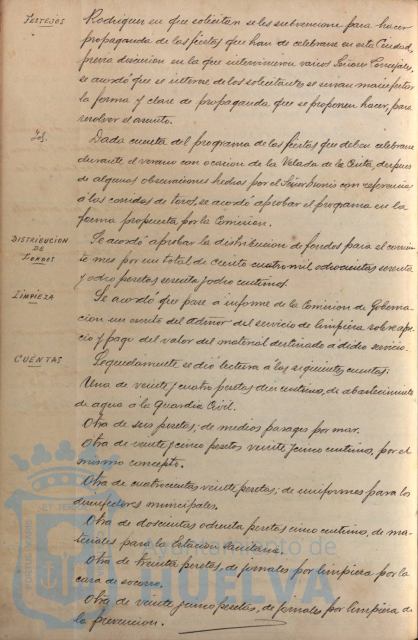 FESTEJOS
Rodriguez en que solicitan se les subvencione para hacer
propaganda de las fiestas que han de celebrarse en esta Ciudad,
previa discusion en la que intervinieron varios Señores Concejales,
se acordó que se interese de los solicitantes se sirvan manifestar
la forma y clase de propaganda que se proponen hacer, para
resolver el asunto.
Id.
Dada cuenta del programa de las fiestas que deben celebrarse
durante el verano con ocasion de la Velada de la Cinta, despues
de algunas observaciones hechas por el Señor con referencia
á las corridas de toros, se acordó aprobar el programa en la
forma propuesta por la Comision.
DISTRIBUCION
DE
FONDOS
Se acordó aprobar la distribucion de fondos para el corrien-
te mes por un total de ciento cuatro mil ochocientas sesenta
y ocho pesetas sesenta y ocho centimos.
LIMPIEZA
Se acordó que pase a informe de la Comision de Goberna-
cion un escrito del admor del servicio de limpieza sobre apre-
cio y pago del valor del material destinado a dicho servicio.
CUENTAS
Seguidamente se dió lectura á las siguientes cuentas:
Una de veinte y cuatro pesetas diez centimos, de abastecimiento
de agua á la Guardia Civil.
Otra de seis pesetas, de medios pasages por mar.
Otra de veinte y cinco pesetas veinte y cinco centimos, por el
mismo concepto.
Otra de cuatrocientas veinte pesetas, de uniformes para los
municipales.
Otra de doscientas ochenta pesetas cinco centimos, de ma-
teriales para la Estacion Sanitaria.
Otra de treinta pesetas, de jornales por limpieza por la
casa de socorro.
Otra de veinte y cinco pesetas, de jornales por limpieza de
la prevencion.
Ayuntamiento de
HUELVA